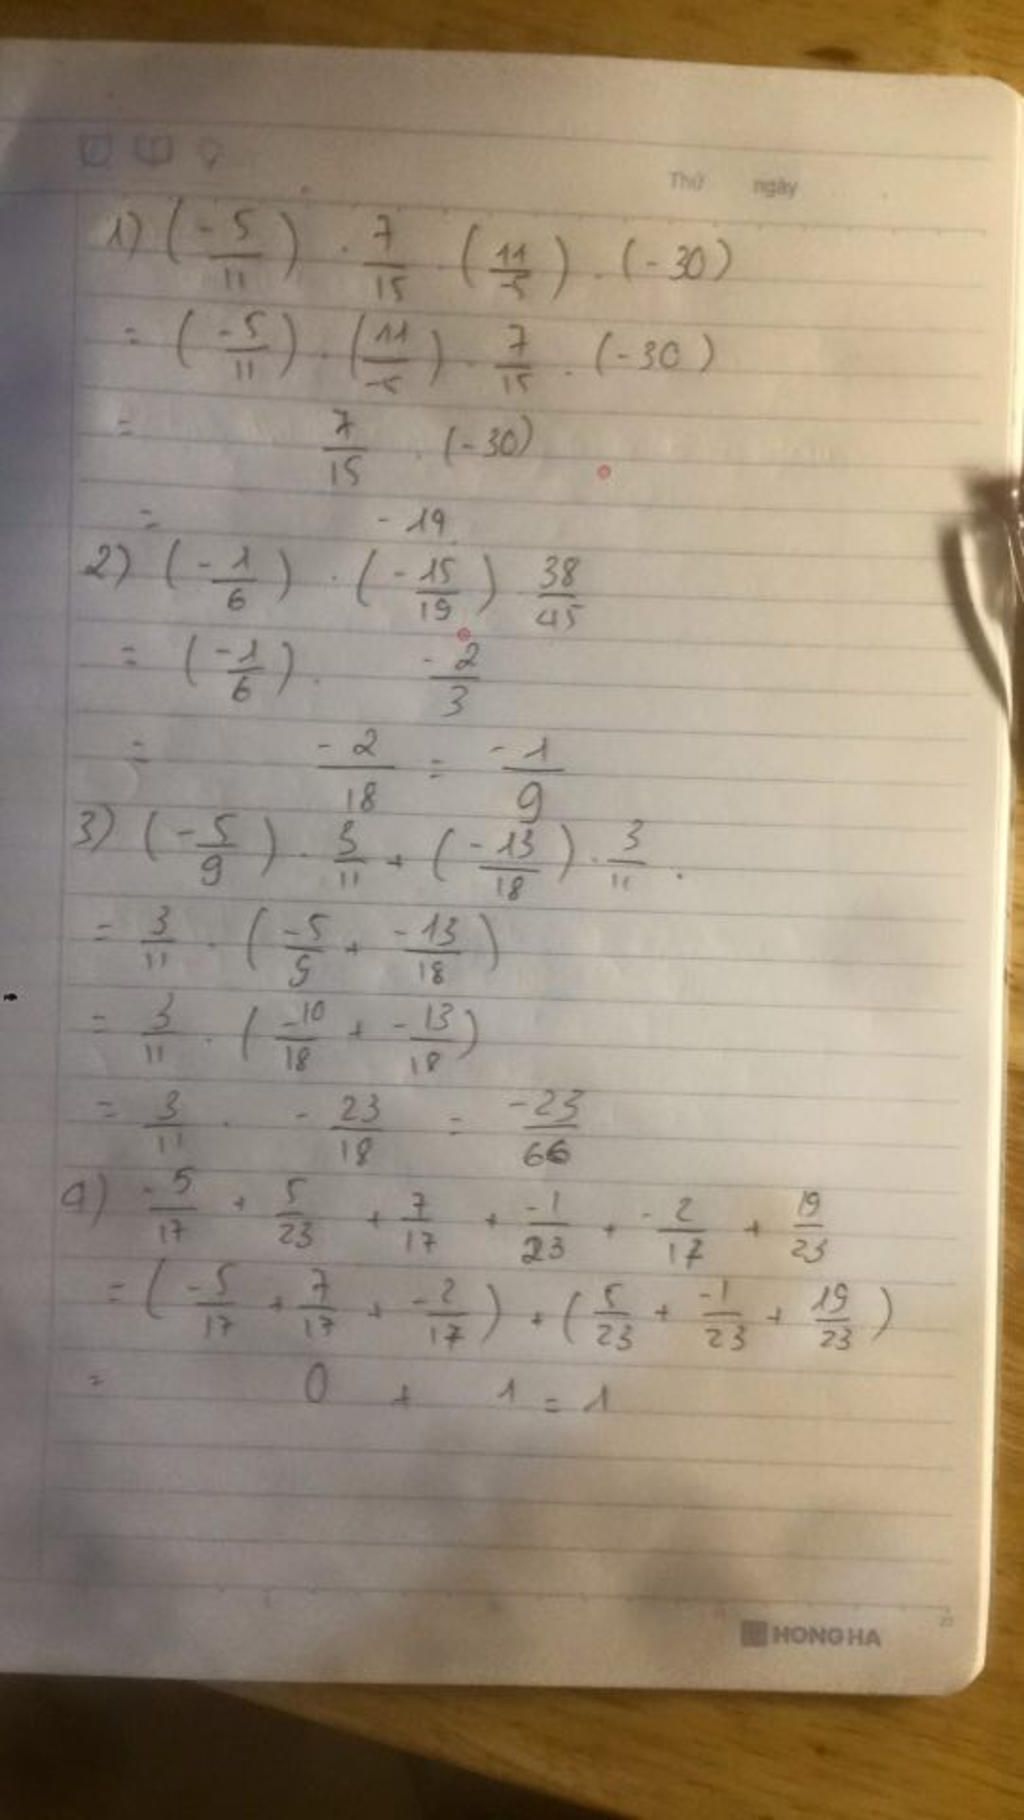 Thứ ngày
1) (-5/11) . 7/15 . (11/-5) . (-30)
= (-5/11) . (11/-5) . 7/15 . (-30)
= 7/15 . (-30)
= -19
2) (-1/6) . (-15/19) 38/45
= (-1/6) . -2/3
= -2/18 = -1/9
3) (-5/9) . 3/11 + (-13/18) . 3/11 .
= 3/11 . (-5/9 + -13/18)
= 3/11 . (-10/18 + -13/18)
= 3/11 . -23/18 = -23/66
4) -5/17 + 5/23 + 7/17 + -1/23 + -2/17 + 19/23
= (-5/17 + 7/17 + -2/17) + (5/23 + -1/23 + 19/23)
= 0 + 1 = 1
HONG HA